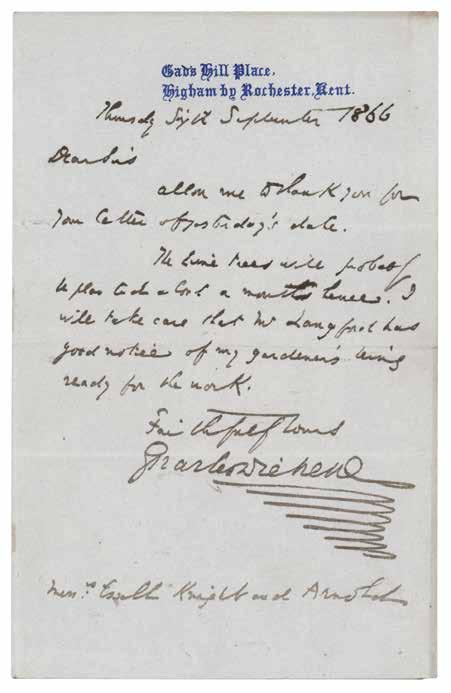 Gad's Hill Place,
Higham by Rochester, Kent.
Thursday Sixth September 1866
Dear Sirs
allow me to thank you for
your letter of yesterday's date.
The lime trees will probably
be planted about a month hence. I
will take care that Mr Langford has
good notice of my gardener's being
ready for the work.
Faithfully Yours
Charles Dickens
Messrs Knight and Arnold